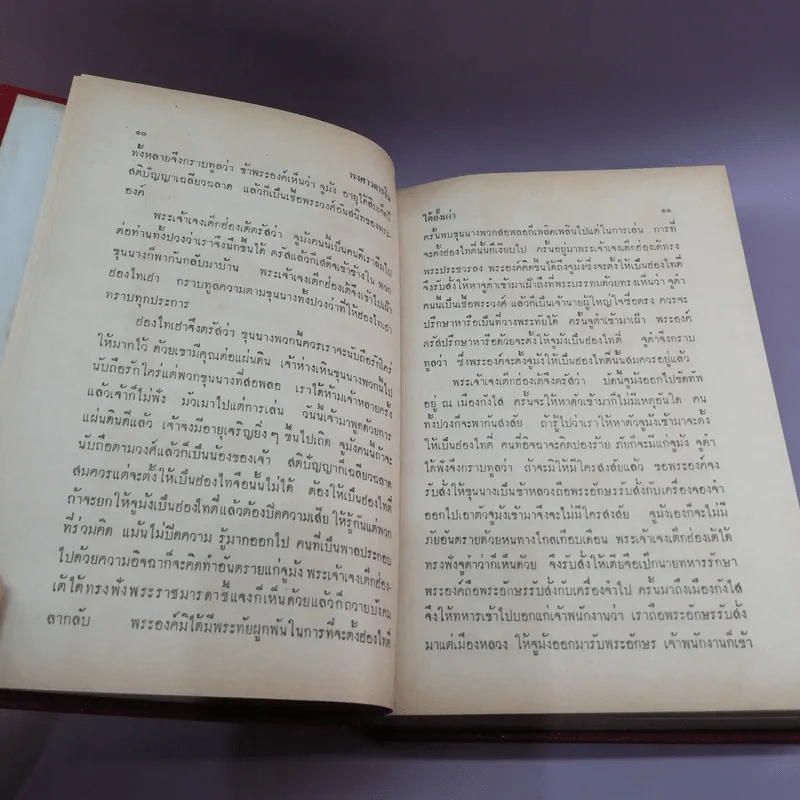 ๑๐
พงศาวดารจีน
ทั้งหลายจึงกราบทูลว่า ข้าพระองค์เห็นว่า จูมัง อายุได้สิบเจ็ดปี
สติปัญญาเฉลียวฉลาด แล้วก็เป็นเชื้อพระวงศ์อันสนิทของพระ-
องค์
พระเจ้าเจงเต๊กฮ่องเต้ตรัสว่า จูมังคนนี้เป็นคนดีเราลืมไป
ต่อท่านทั้งปวงว่าเราจึงนึกขึ้นได้ ตรัสแล้วก็เสด็จเข้าข้างใน พวก
ขุนนางก็พากันกลับมาบ้าน พระเจ้าเจงเต๊กฮ่องเต้จึงเข้าไปเฝ้า
ฮ่องไทเฮา กราบทูลความตามขุนนางทั้งปวงว่าที่ให้ฮ่องไทเฮา
ทราบทุกประการ
ฮ่องไทเฮาจึงตรัสว่า ขุนนางพวกนี้ควรเราจะนับถือรักใคร่
ให้มากไว้ ด้วยเขามีคุณต่อแผ่นดิน เจ้าห่างเหินขุนนางพวกนี้ไป
นับถือรักใคร่แต่พวกขุนนางที่สอพลอ เราได้ห้ามเจ้าหลายครั้ง
แล้วเจ้าก็ไม่ฟัง มัวเมาไปแต่การเล่น วันนี้เจ้ามาพูดด้วยการ
แผ่นดินดีแล้ว เจ้าจงมีอายุเจริญยิ่งๆ ขึ้นไปเถิด จูมังคนนี้ถ้าจะ
นับถือตามวงศ์แล้วก็เป็นน้องของเจ้า สติปัญญาก็เฉลียวฉลาด
สมควรแต่จะตั้งให้เป็นฮ่องไทจือนั้นไม่ได้ ต้องให้เป็นฮ่องไทตี้
ถ้าจะยกให้จูมังเป็นฮ่องไทตี้แล้วต้องปิดความเสีย ให้รู้กันแต่พวก
ที่ร่วมคิด แม้นไม่ปิดความ รู้มากออกไป คนที่เป็นพาลประกอบ
ไปด้วยความอิจฉาก็จะคิดทำอันตรายแก่จูมัง พระเจ้าเจงเต๊กฮ่อง-
เต้ได้ทรงฟังพระราชมารดาชี้แจงก็เห็นด้วยแล้วก็ถวายบังคม
ลากลับ พระองค์มิได้มีพระทัยผูกพันในการที่จะตั้งฮ่องไทตี้
ไต้อั้งเผ่า
๑๑
ครั้นพบขุนนางพวกสอพลอก็เพลิดเพลินไปแต่ในการเล่น การที่
จะตั้งฮ่องไทตี้นั้นก็เงียบไป ครั้นอยู่มาพระเจ้าเจงเต๊กฮ่องเต้ทรง
พระประชวรลง พระองค์คิดขึ้นได้ถึงจูมังซึ่งจะตั้งให้เป็นฮ่องไทตี้
จึงรับสั่งให้หาจูดำเข้ามาเฝ้าถึงที่พระบรรทมด้วยทรงเห็นว่า จูดำ
คนนี้เป็นเชื้อพระวงศ์ แล้วก็เป็นเจ้านายผู้ใหญ่ใจซื่อตรง ควรจะ
ปรึกษาหารือเป็นที่วางพระทัยได้ ครั้นจูดำเข้ามาเฝ้า พระองค์
ตรัสปรึกษาหารือด้วยจะตั้งให้จูมังเป็นฮ่องไทตี้ จูดำจึงกราบ
ทูลว่า ซึ่งพระองค์จะตั้งจูมังให้เป็นฮ่องไทตี้นั้นสมควรอยู่แล้ว
พระเจ้าเจงเต๊กฮ่องเต้จึงตรัสว่า บัดนี้จูมังออกไปขัดทัพ
อยู่ ณ เมืองกังไส ครั้นจะให้หาตัวเข้ามาก็ไม่มีเหตุอันใด คน
ทั้งปวงก็จะพากันสงสัย ถ้ารู้ไปว่าเราให้หาตัวจูมังเข้ามาจะตั้ง
ให้เป็นฮ่องไทตี้ คนที่อิจฉาจะคิดปองร้าย ภัยก็จะมีแก่จูมัง จูดำ
ได้ฟังจึงกราบทูลว่า ถ้าจะมิให้มีใครสงสัยแล้ว ขอพระองค์จง
รับสั่งให้ขุนนางเป็นข้าหลวงถือพระอักษรรับสั่งกับเครื่องจองจำ
ออกไปเอาตัวจูมังเข้ามาจึงจะไม่มีใครสงสัย จูมังเองก็จะไม่มี
ภัยอันตรายด้วยหนทางไกลเกือบเดือน พระเจ้าเจงเต๊กฮ่องเต้ได้
ทรงฟังจูดำว่าก็เห็นด้วย จึงรับสั่งให้เตียจือเป๊กนายทหารรักษา
พระองค์ถือพระอักษรรับสั่งกับเครื่องจำไป ครั้นมาถึงเมืองกังไส
จึงให้ทหารเข้าไปบอกแก่เจ้าพนักงานว่า เราถือพระอักษรรับสั่ง
มาแต่เมืองหลวง ให้จูมังออกมารับพระอักษร เจ้าพนักงานก็เข้า